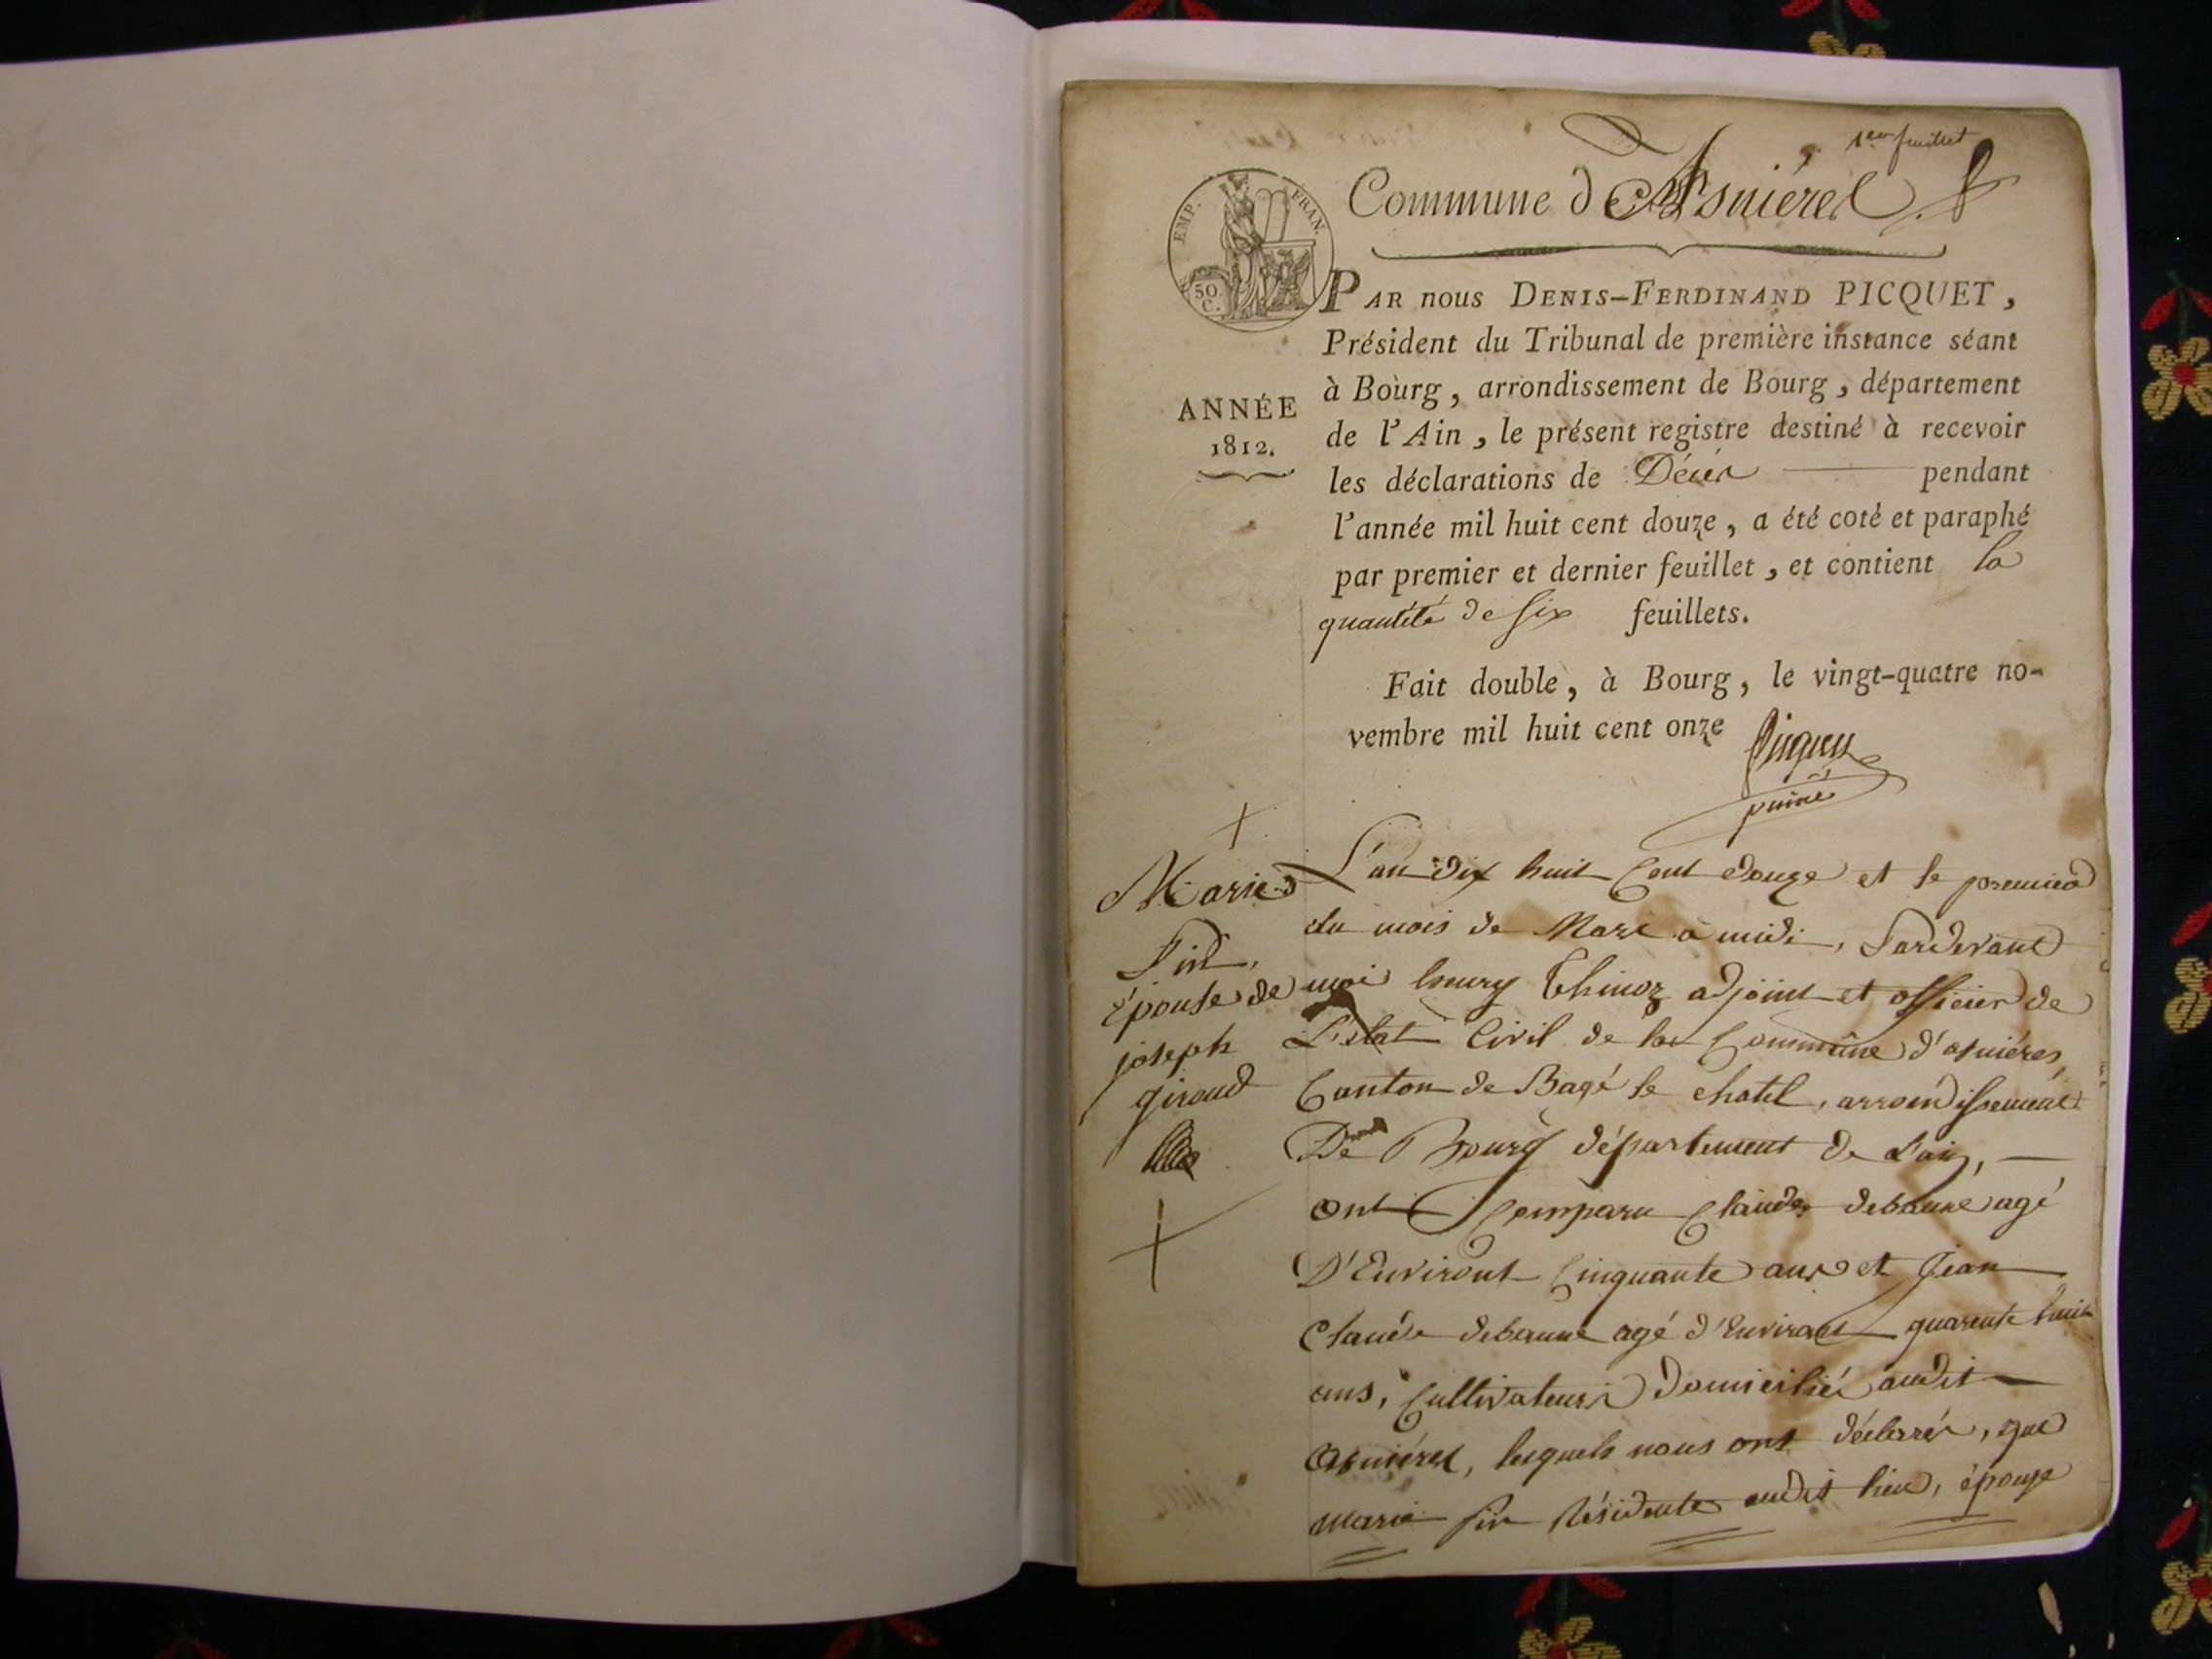 1er feuillet
Commune d'Asnières
EMP. FRAN.
50.
C.
PAR nous DENIS-FERDINAND PICQUET,
Président du Tribunal de première instance séant
à Bourg, arrondissement de Bourg, département
de l'Ain, le présent registre destiné à recevoir
les déclarations de Décès pendant
l'année mil huit cent douze, a été coté et paraphé
par premier et dernier feuillet, et contient la
quantité de six feuillets.
Fait double, à Bourg, le vingt-quatre no-
vembre mil huit cent onze
Picquet
ANNÉE
1812.
Marie
épouse de
joseph
giroud
L'an dix huit Cent douze et le premier
du mois de Mars à midi, Pardevant
moi henry Thinoz adjoint et officier de
L'Etat Civil de la Commune d'asniéres,
Canton de Bagé le chatel, arrondissement
De Bourg département de L'ain,
ont Comparu Claude debaune agé
D'Environt Cinquante ans et Jean
Claude debaune agé d'Environt quarente huit
ans, Cultivateurs Domiciliés audit
Asniéres, lesquels nous ont déclarrés, que
marie fin Résidente audit lieu, épouse